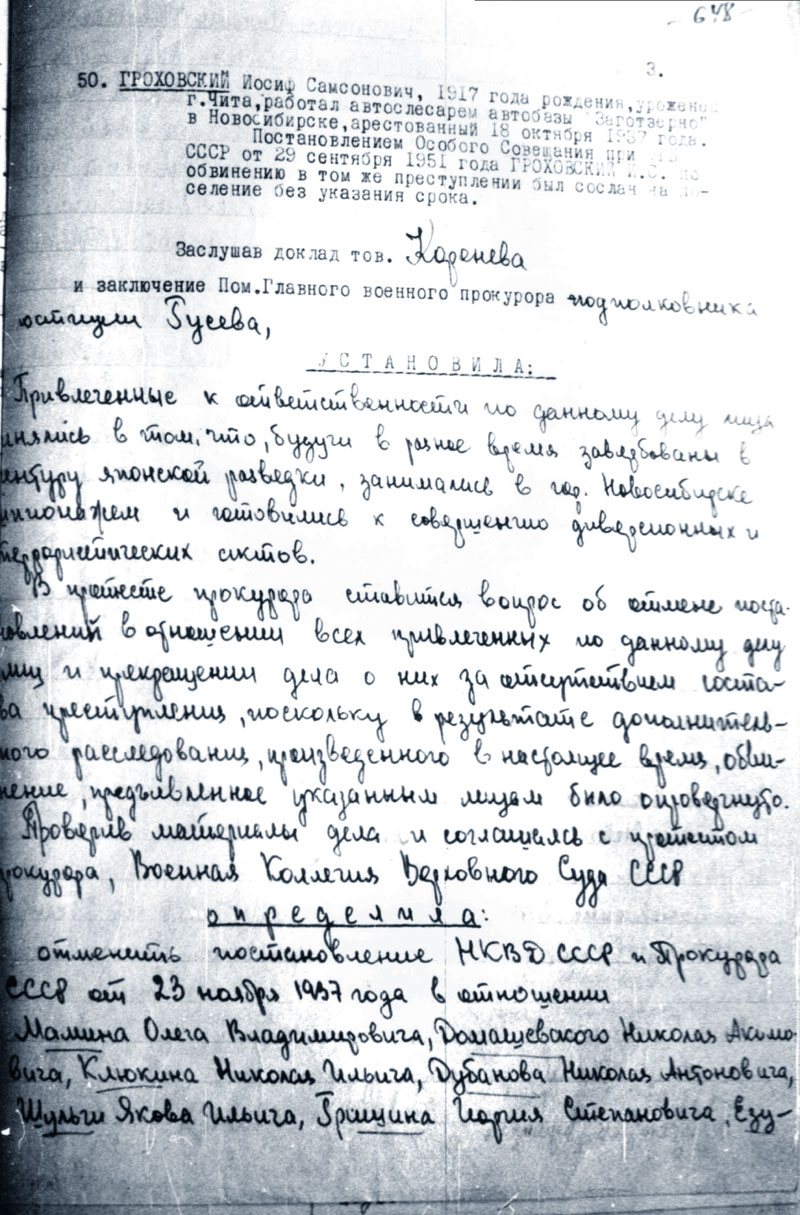 648
3.
50. ГРОХОВСКИЙ Иосиф Самсонович, 1917 года рождения, урожене
г.Чита, работал автослесарем автобазы "Заготзерно"
в Новосибирске, арестованный 18 октября 1937 года.
Постановлением Особого Совещания при
СССР от 29 сентября 1951 года ГРОХОВСКИЙ И.С. по
обвинению в том же преступлении был сослан на по-
селение без указания срока.
Заслушав доклад тов.
и заключение Пом.Главного военного прокурора подполковника
юстиции Гусева,
УСТАНОВИЛА:
Привлеченные к ответственности по данному делу лица
инялись в том, что, будучи в разное время завербованы в
ентуру японской разведки, занимались в гор. Новосибирске
шпионажем и готовились к совершению диверсионных и
террористических актов.
В протесте прокурора ставится вопрос об отмене поста-
новлений в отношении всех привлеченных по данному делу
лиц и прекращении дела о них за отсутствием соста-
ва преступления, поскольку в результате дополнитель-
ного расследования, произведенного в настоящее время, обви-
нение, предъявленное указанным лицам было опровергнуто.
Проверив материалы дела и соглашаясь с протестом
рокурора, Военная Коллегия Верховного Суда СССР
определила:
отменить постановление НКВД СССР и Прокурора
СССР от 23 ноября 1937 года в отношении
Мамина Олега Владимировича, Домашевского Николая Акимо-
вича, Клюкина Николая Ильича, Дубанова Николая Антоновича,
Шульги Якова Ильича, Гришина Георгия Степановича, Езу-